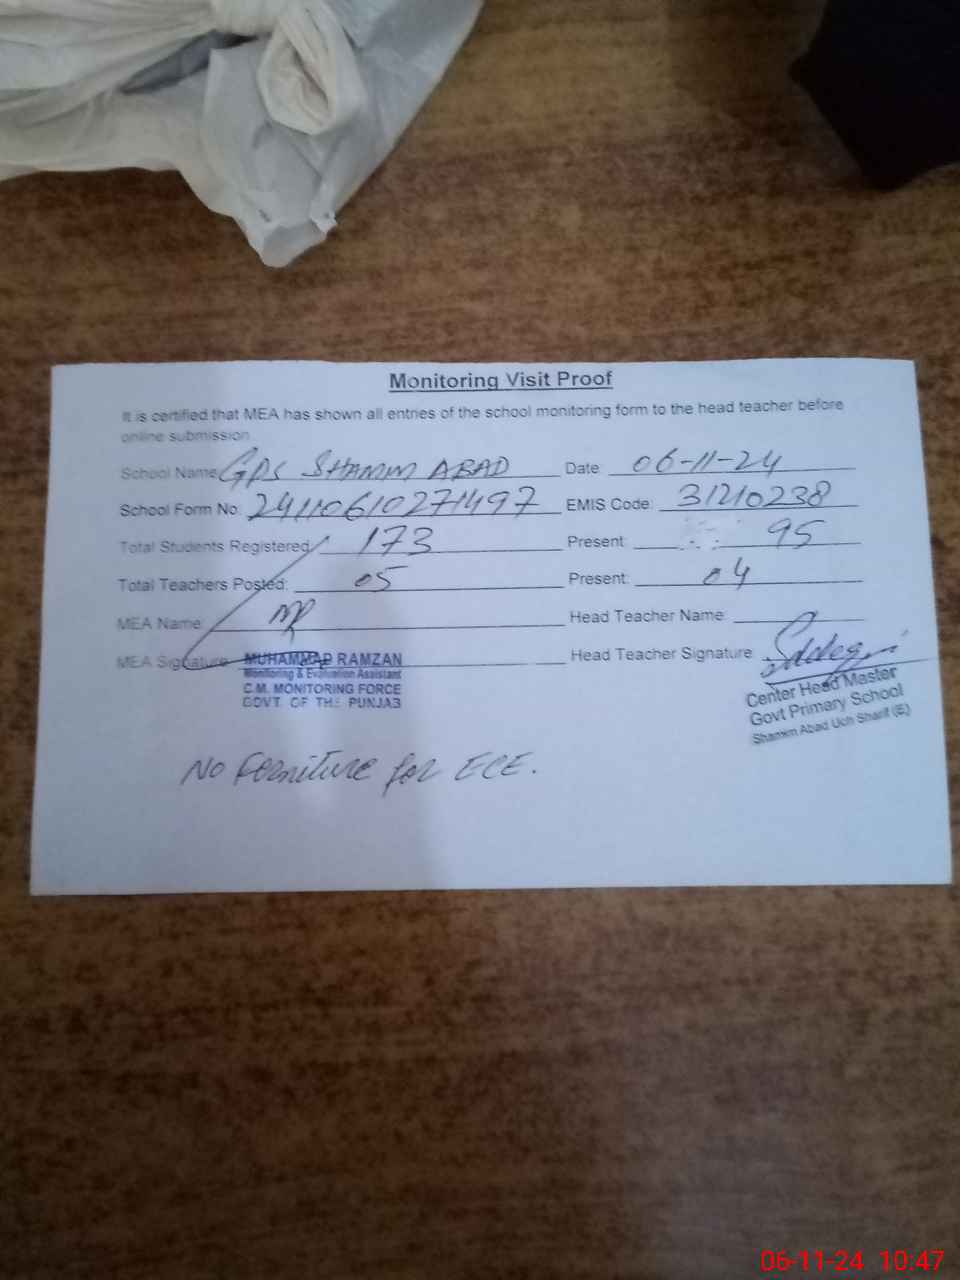 Monitoring Visit Proof
It is certified that MEA has shown all entries of the school monitoring form to the head teacher before
online submission
School Name: GPS SHAMIM ABAD Date: 06-11-24
School Form No: 24110610271497 EMIS Code: 31210238
Total Students Registered: 173 Present: 95
Total Teachers Posted: 05 Present: 04
MEA Name: MR Head Teacher Name:
MEA Signature Head Teacher Signature
MUHAMMAD RAMZAN
Monitoring & Evaluation Assistant
C.M. MONITORING FORCE
GOVT. OF THE PUNJAB
Center Head Master
Govt Primary School
Shamim Abad Uch Sharif (E)
No Forniture for ECE.
06-11-24 10:47